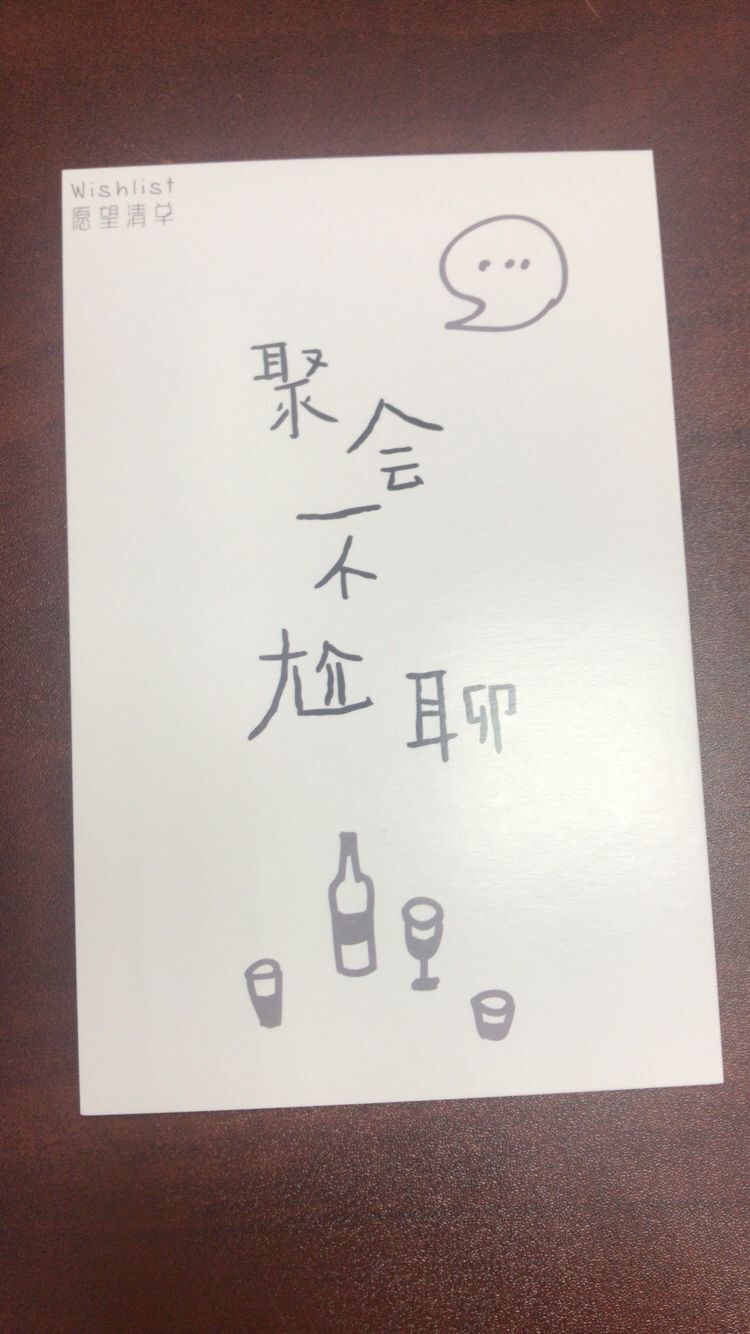 Wishlist
愿望清单
聚会
不
尬聊